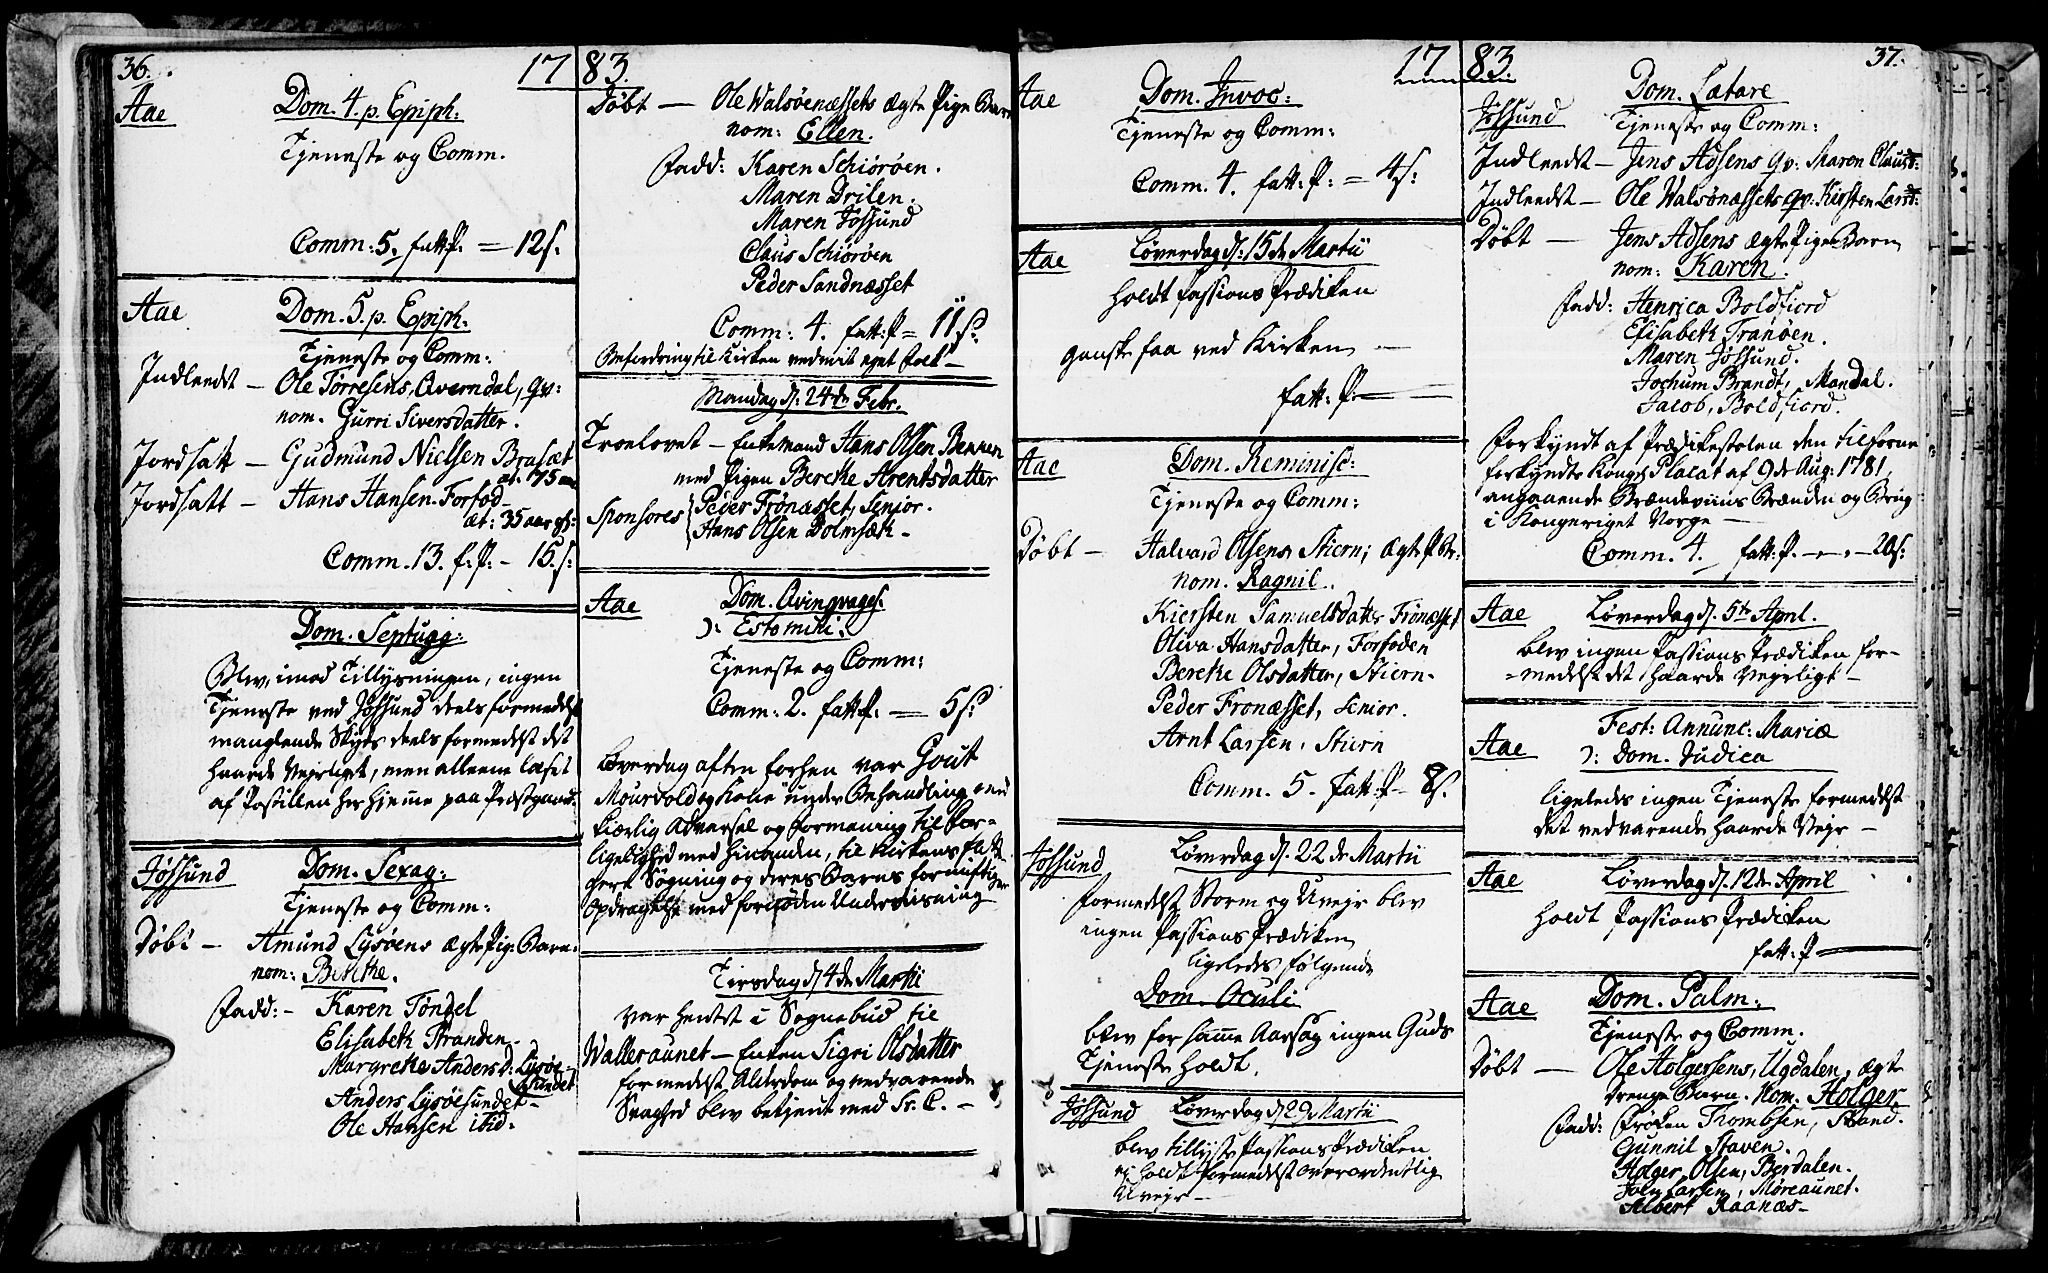 36.
17 83.
Aae
Dom. 4. p. Epiph:
Tjeneste og Comm.
Comm: 5. fatt: P. = 12 s.
Aae
Dom. 5. p. Epiph.
Tjeneste og Comm:
Indleedt - Ole Torresens, Averndal, qv:
nom. Gurri Siversdatter.
Jordsatt - Gudmund Nielsen Brasæt
æt: 75 aar
Jordsatt - Hans Hansen Forfod
æt: 35 aar
Comm. 13. f: P. - 15. s:
Dom. Septuag:
Blev, imod Tillysningen, ingen
Tjeneste ved Jøssund deels formedelst
manglende Skyds deels formedelst det
haarde Vejrligt, men alleene læst
af Postillen her hjemme paa Præstgaard.
Jøssund
Dom. Sexag:
Tjeneste og Comm:
Døbt - Amund Lysøens ægte Pige Barn
nom: Berethe.
Fadd: - Karen Tøndel
Elisabeth Stranden
Margrethe Andersd: Lysøe-
sundet
Anders Lysøesundet -
Ole Hansen ibid:
Døbt - Ole Walsøenæssets ægte Pige Barn
nom: Ellen.
Fadd: Karen Schiørøen.
Maren Drilen.
Maren Jøssund
Claus Schiørøen
Peder Sandnæsset
Comm: 4. fatt: P = 11 s.
Befordring til Kirken ved mit eget folk -
Mandag d. 24de Febr.
Troelovet - Enkemand Hans Olsen
med Pigen Berethe Arentsdatter
Sponsores Peder Frønæsset, Senior.
Hans Olsen Dolmsæth -
Aae
Dom. Qvinqvages.
ɔ: Estomihi.
Tjeneste og Comm:
Comm: 2. fatt: P. = 5 s.
Løverdag aften forhen var Gout
og Kone under Behandling med
kiærlig Advarsel og Formaning til For-
ligelighed med hinanden, til Kirkens
Søgning og deres Barns
Opdragelse med fornøden Underviisning
Tirsdag d. 4de Martii
var hentet i Sognebud til
Walleraunet - Enken Sigri Olsdatter
formedelst Alderdom og vedvarende
Svaghed blev betjent med Sr. C. -
17 83
37.
Aae
Dom. Invoc:
Tjeneste og Comm:
Comm. 4. fatt: P: = 4 s:
Aae
Løverdag d. 15de Martii
holdt Passions Prædiken
ganske faa ved Kirken -
fatt: P: -
Aae
Dom. Reminisc:
Tjeneste og Comm:
Døbt - Halvard Olsens Stiern; ægte P. B:
nom. Ragnil.
Kiersten Samuelsdatter Frønæsset
Oliva Hansdatter, Forfoden
Berethe Olsdatter, Stiern.
Peder Fronæsset, Senior.
Arnt Larsen, Stiern
Comm. 5. fatt: P - 8 s.
Jøssund
Løverdag d. 22de Martii
formedelst Storm og Uvejr blev
ingen Passions Prædiken
ligeledes følgende
Dom. Oculi
blev for samme Aarsag ingen Guds
Tjeneste holdt.
Jøssund
Løverdag d. 29 Martii
blev tillyste Passions Prædiken
ej holdt formedelst overordentlig
Uvejr -
Jøssund
Dom. Lætare
Tjeneste og Comm:
Indleedt - Jens Adsens qv: Maren Clausd:
Indleedt - Ole Walsønæssets qv: Kirsten Larsd:
Døbt - Jens Adsens ægte Pige Barn
nom: Karen.
Fadd: Henrica Boldfiord
Elisabeth Tranøen.
Maren Jøssund.
Jochum Brandt, Mandal.
Jacob, Boldfiord.
Forkyndt af Prædikestolen den tilforne
forkyndte Kongl. Placat af 9de Aug: 1781,
angaaende Brændeviins Brænden og Brug
i Kongeriget Norge -
Comm. 4. fatt: P. - 20 s:
Aae
Løverdag d. 5te April.
blev ingen Passions Prædiken for-
medelst det haarde Vejrligt -
Aae
Fest: Annunc: Mariæ
ɔ: Dom. Judica
ligeledes ingen Tjeneste formedelst
det vedvarende haarde Vejr -
Aae
Løverdag d. 12de April
holdt Passions Prædiken
fatt: P -
Aae
Dom. Palm:
Tjeneste og Comm.
Døbt - Ole Holgersens, Ugdalen, ægte
Drenge Barn. Nom. Holger
Fadd: Frøken Trombsen, Strand.
Gunnil Staven.
Holger Olsen, Berdalen.
John Larsen, Møreaunet.
Albert Raanæs -